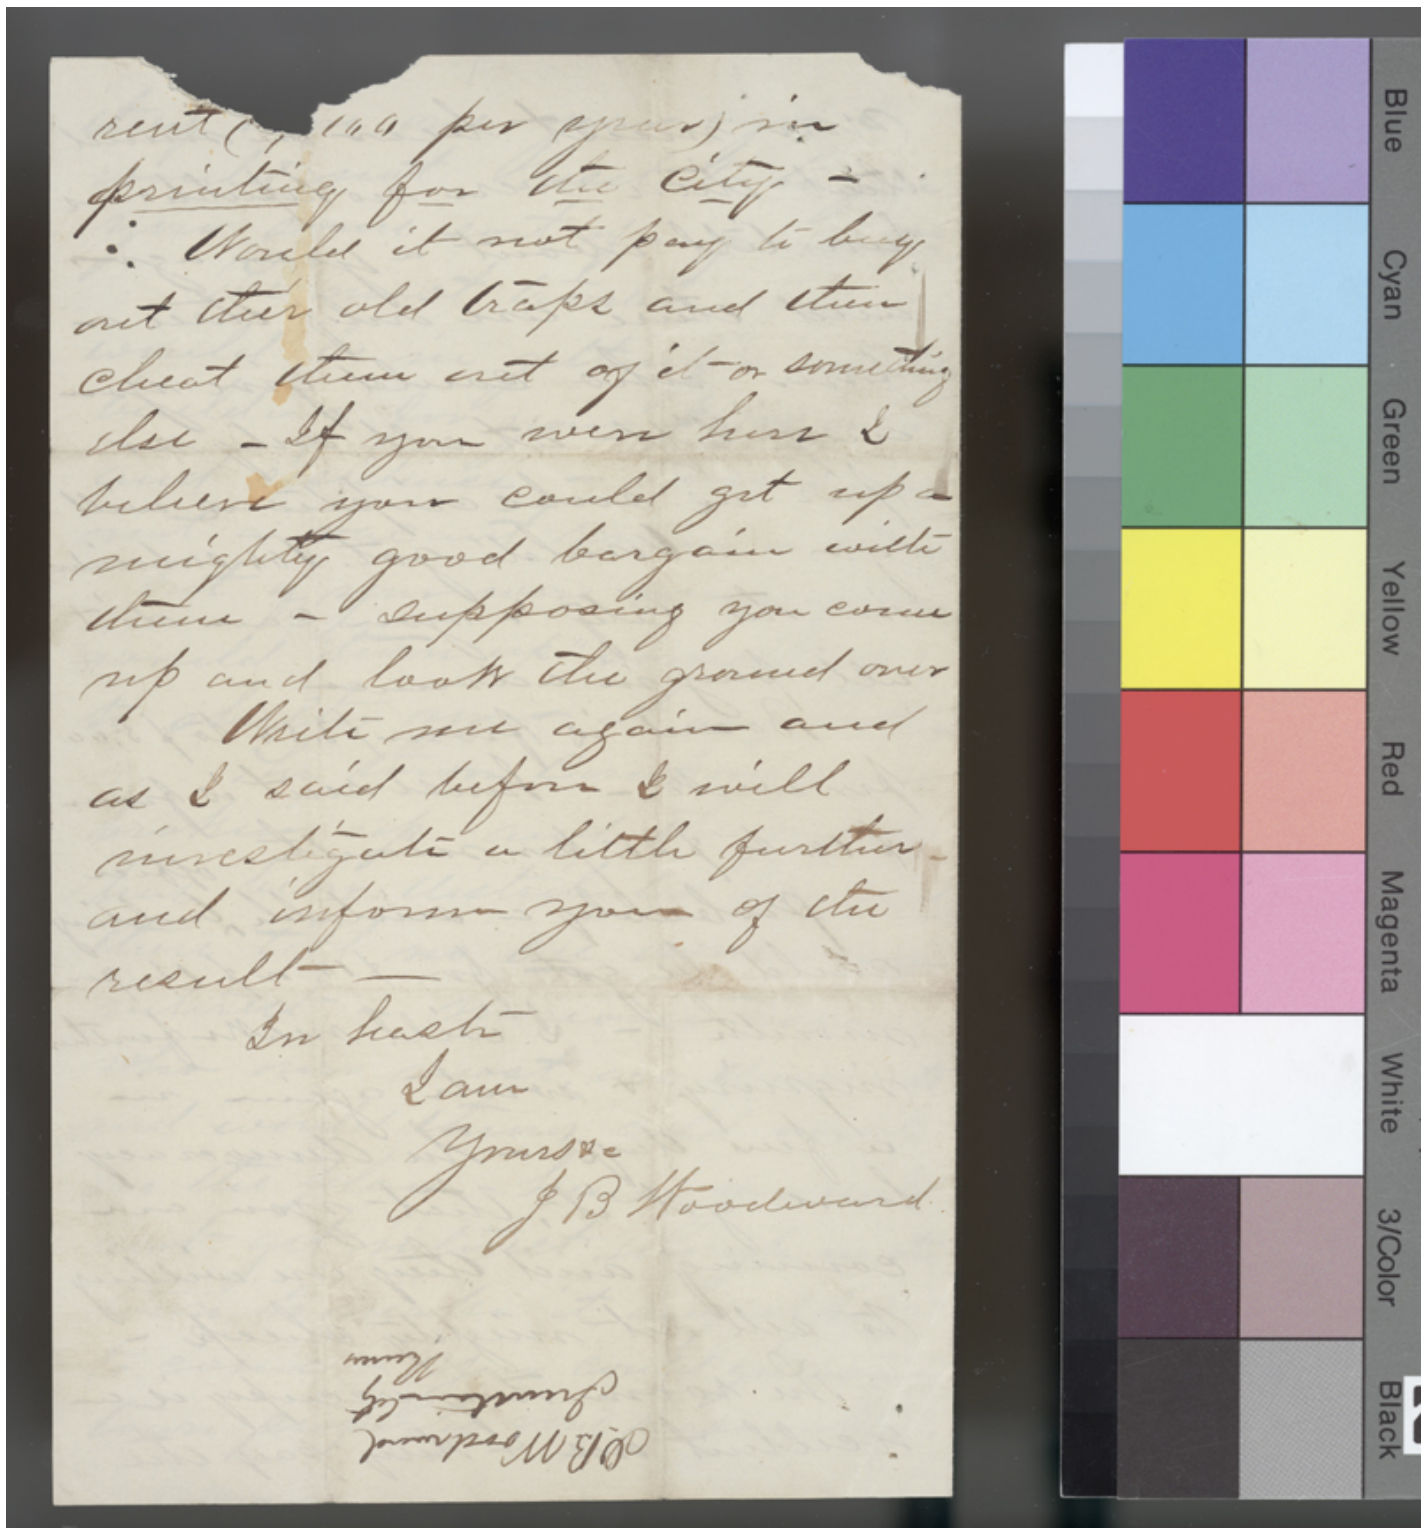 rent ( per year) in
printing for the City -
Would it not pay to buy
out their old traps and then
cheat them out of it - or something
else - If you were here I
believe you could get up a
mighty good bargain with
them - supposing you come
up and look the ground over
Write me again and
as I said before I will
investigate a little further -
and inform you of the
result -
In haste
I am
Yours &c
J B Woodward
J B Woodward
Junction City
Kansas
Blue
Cyan
Green
Yellow
Red
Magenta
White
3/Color
Black